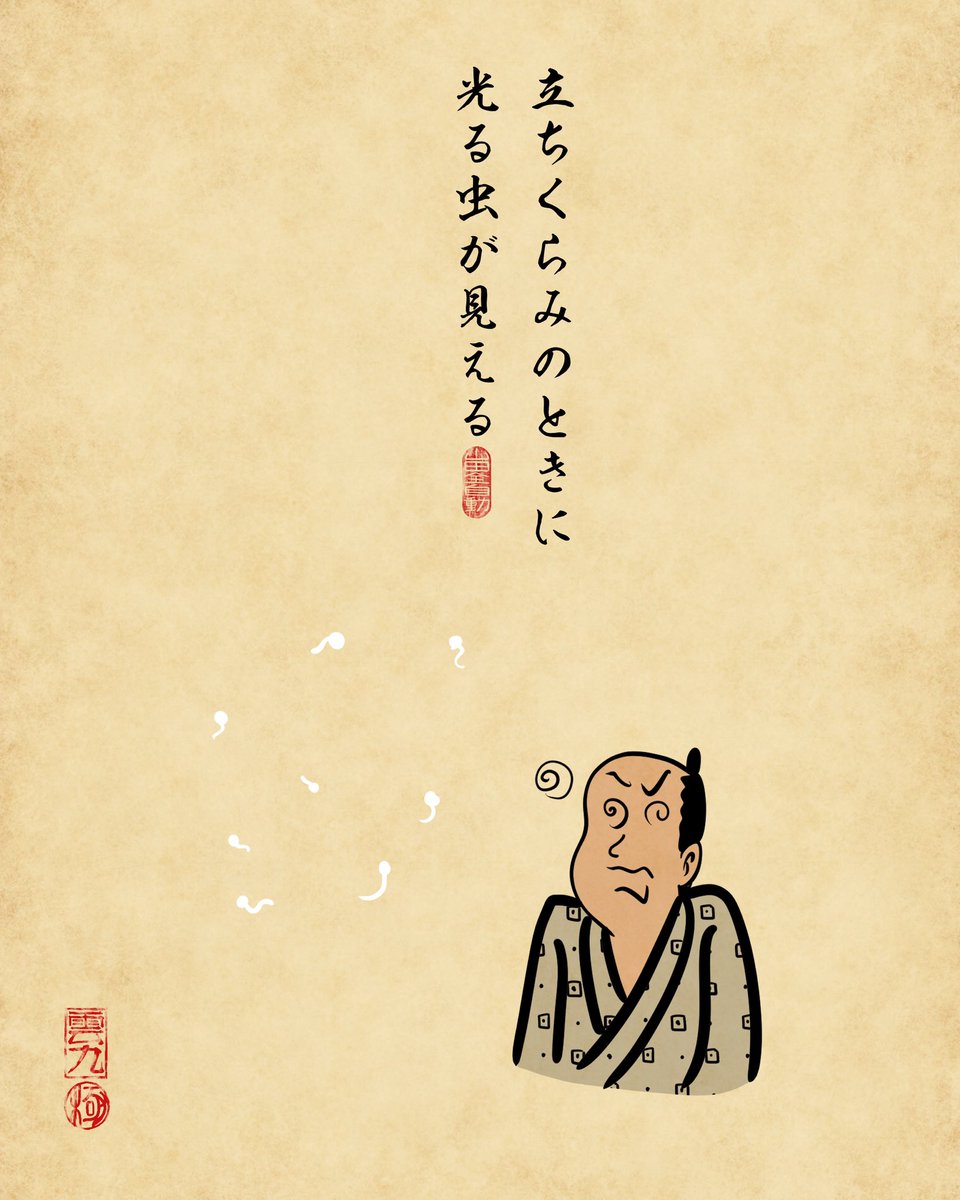 立ちくらみのときに
光る虫が見える